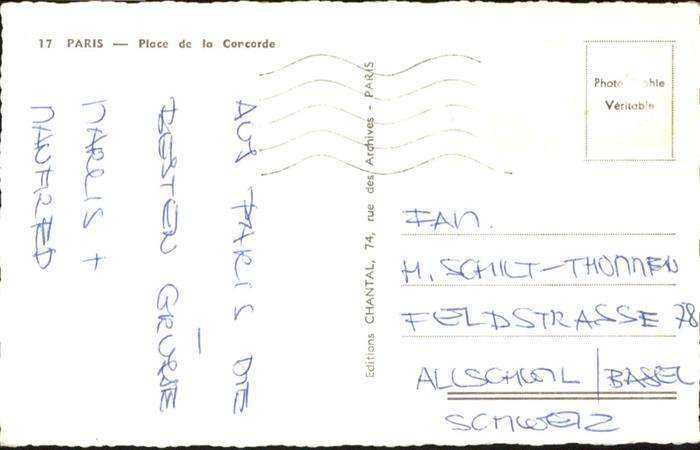 17 PARIS — Place de la Concorde
AUS PARIS DIE
BESTEN GRÜSSE
MANFRED
Editions CHANTAL, 74, rue des Archives - PARIS
Photographie
Véritable
FAM.
H. SCHILT-THOMMEN
FELDSTRASSE 78
ALLSCHWIL / BASEL
SCHWEIZ